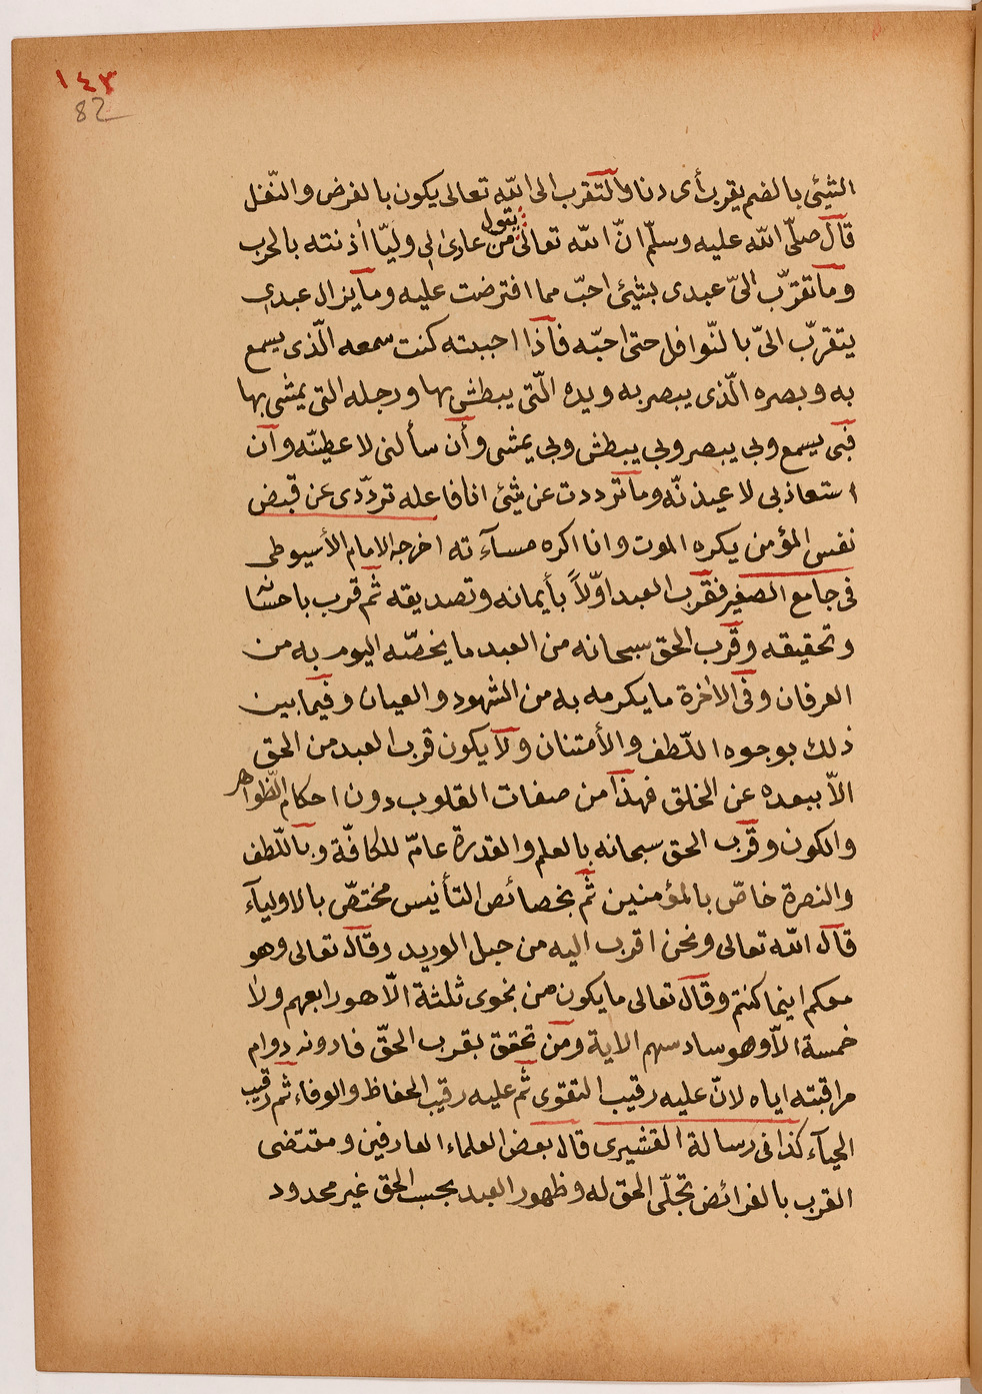 ١٤٣
82
الشيئ بالضم يقرب أى دنا والتقرب الى الله تعالى يكون بالفرض والنّفل
قال صلّى الله عليه وسلّم انّ الله تعالى يقول من عادى لى وليّا اذنته بالحرب
وما تقرّب الىّ عبدى بشيئ احبّ مما افترضت عليه وما يزال عبدى
يتقرّب الىّ بالنّوافل حتى احبّه فاذا احببته كنت سمعه الّذى يسمع
به وبصره الّذى يبصر به ويده الّتى يبطش بها ورجله التى يمشى بها
فبى يسمع وبى يبصر وبى يبطش وبى يمشى وأن سألنى لاعطينّه وان
استعاذ بى لاعيذنّه وما ترددت عن شيئ انا فاعله تردّدى عن قبض
نفس المؤمن يكره الموت وانا اكره مساآءته اخرجه الامام الأسيوطى
فى جامع الصغير فقرب العبد اوّلاً بأيمانه وتصديقه ثم قرب باحسانه
وتحقيقه وقرب الحق سبحانه من العبد ما يخصّه اليوم به من
العرفان وفى الاخرة ما يكرمه به من الشهود والعيان وفيما بين
ذلك بوجوه اللّطف والأمتنان ولا يكون قرب العبد من الحق
الاّ ببعده عن الخلق فهذا من صفات القلوب دون احكام الظّواهر
والكون وقرب الحق سبحانه بالعلم والقدرة عامّ للكافّة وباللّطف
والنصرة خاصّ بالمؤمنين ثم بخصائص التأنيس مختصّ بالاوليآء
قال الله تعالى ونحن اقرب اليه من حبل الوريد وقال تعالى وهو
معكم اينما كنتم وقال تعالى ما يكون من نجوى ثلثة الاّ هو رابعهم ولا
خمسة الاّ وهو سادسهم الاية ومن تحقق بقرب الحقّ فادونه دوام
مراقبته اياه لانّ عليه رقيب التقوى ثم عليه رقيب الحفاظ والوفاء ثم رقيب
الحيآء كذا فى رسالة القشيرى قال بعض العلماء العارفين ومقتضى
القرب بالفرائض تجلّى الحق له وظهور العبد بحسب الحق غير محدود